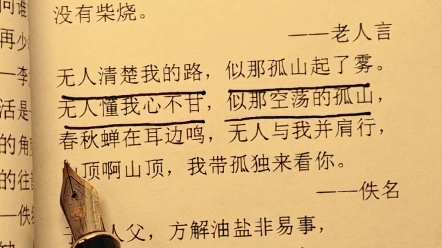 没有柴烧。
——老人言
无人清楚我的路，似那孤山起了雾。
无人懂我心不甘，似那空荡的孤山，
春秋蝉在耳边鸣，无人与我并肩行，
顶啊山顶，我带孤独来看你。
——佚名
人父，方解油盐非易事，
向谁
再少
——李
活是
的角
的往
——佚